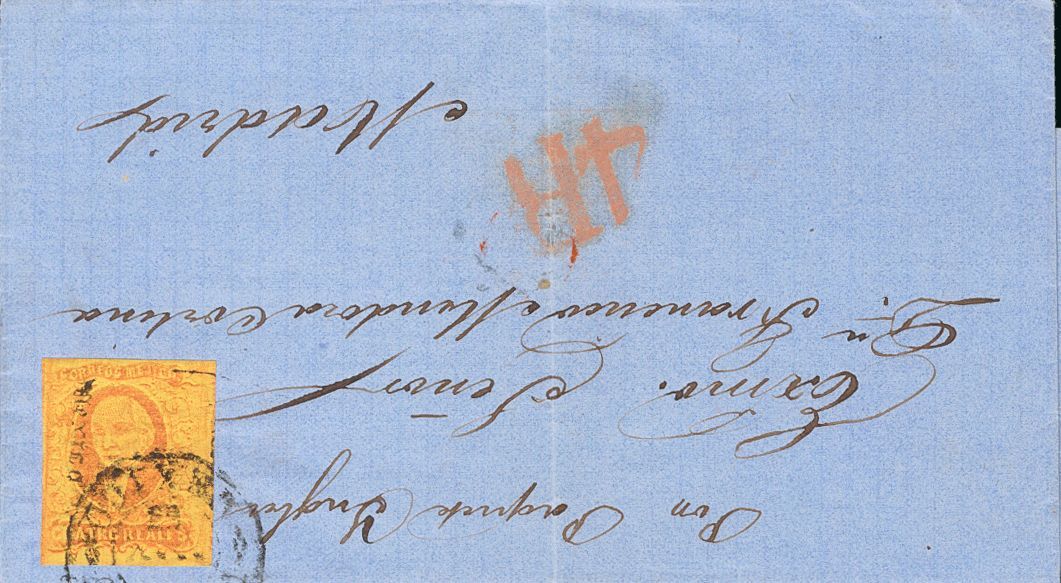 Por Paquete Ingles
Exmo. Señor
Dn Francisco Mendoza Cortina
Madrid
4 H
CORREOS MEJICO
CUATRO REALES